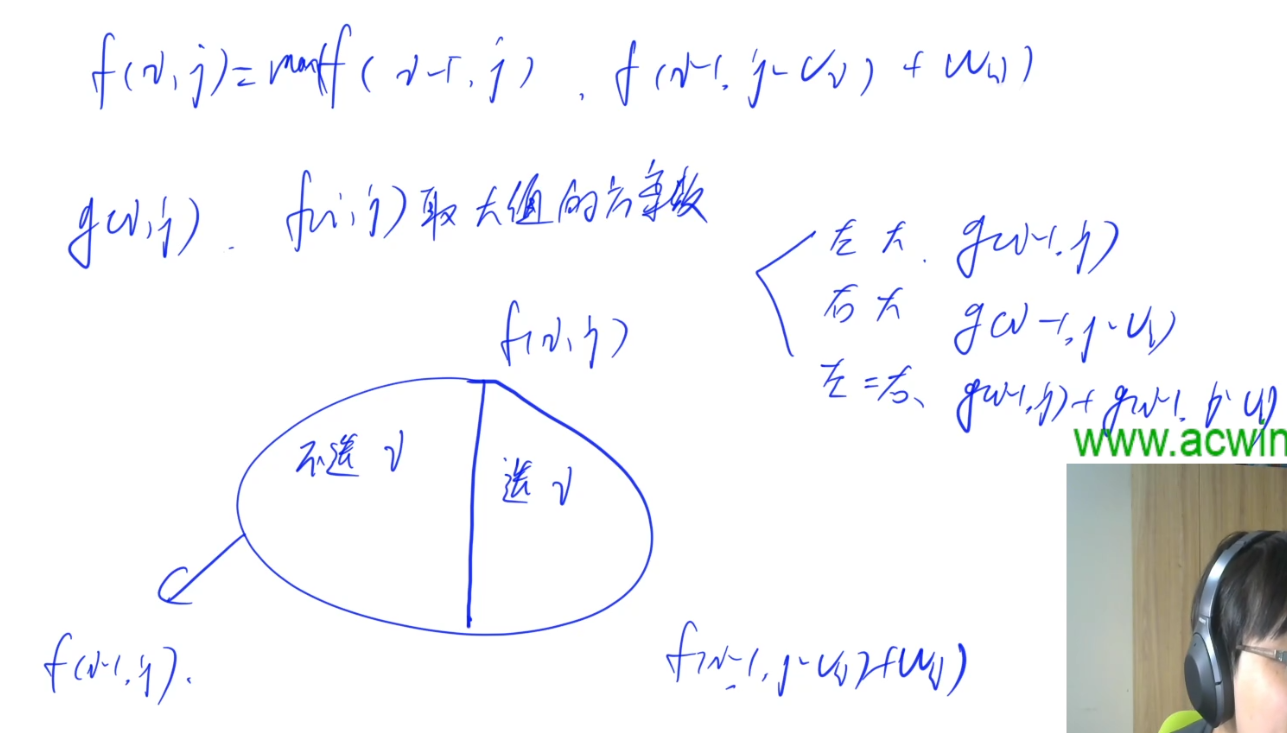 f(i,j)=max(f(i-1,j), f(i-1,j-vi)+wi)
g(i,j). f(i,j)取大值的方案数
左大. g(i-1,j)
右大 g(i-1,j-vi)
左=右、g(i-1,j)+g(i-1,j-vi)
www.acwin
f(i,j)
不选 i
选 i
f(i-1,j).
f(i-1,j-vi)+wi)